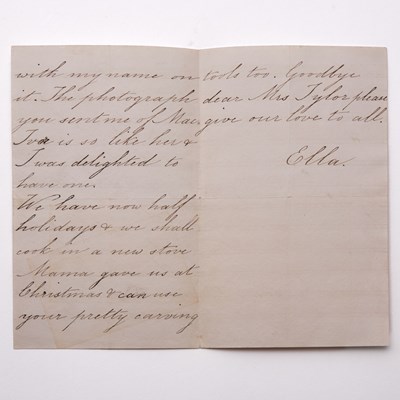 with my name on
it. The photograph
you sent me of Mac,
Iva is so like her &
I was delighted to
have one.
We have now half
holidays & we shall
cook in a new stove
Mama gave us at
Christmas & can use
your pretty carving
tools too. Goodbye
dear Mrs Tylor please
give our love to all.
Ella.